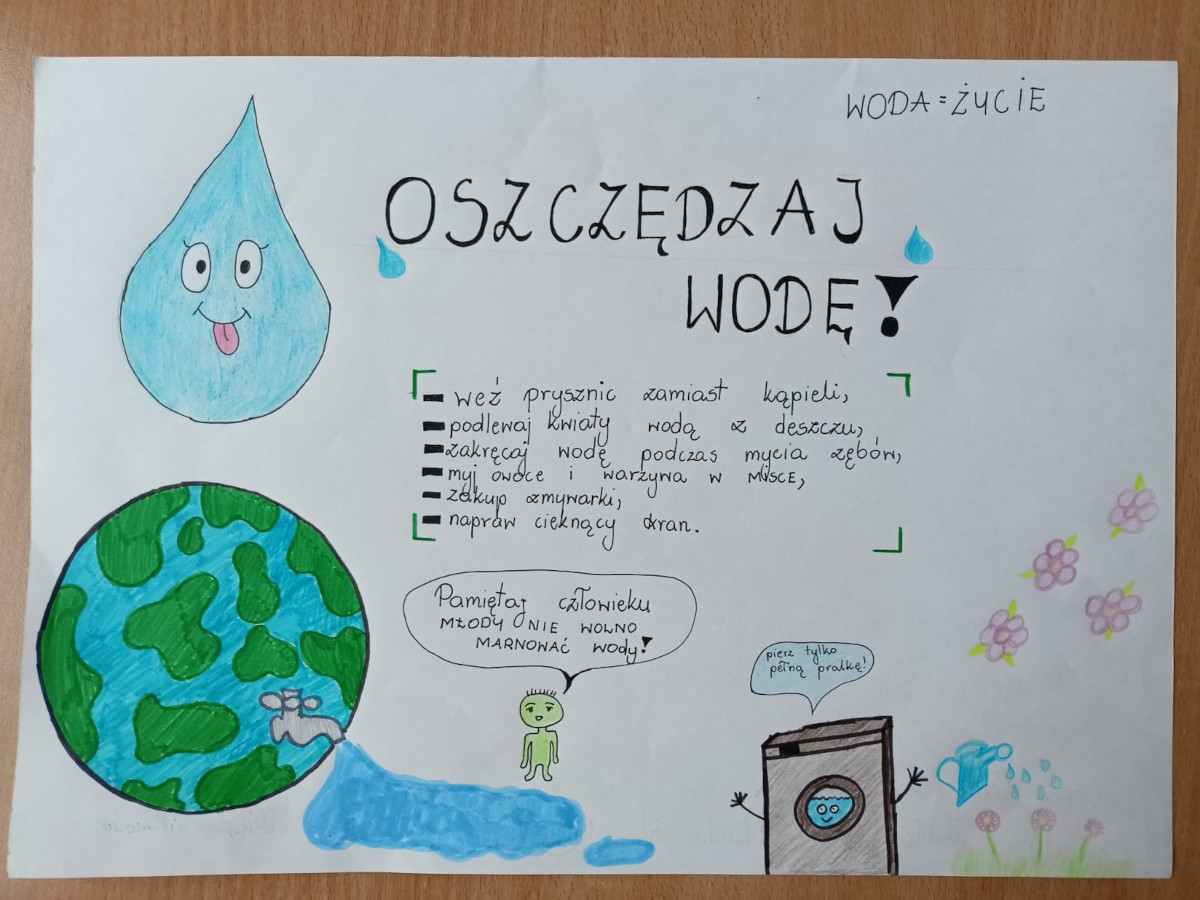 WODA = ŻYCIE
OSZCZĘDZAJ
WODĘ!
- weź prysznic zamiast kąpieli,
- podlewaj kwiaty wodą z deszczu,
- zakręcaj wodę podczas mycia zębów,
- myj owoce i warzywa w MISCE,
- zakup zmywarki,
- napraw cieknący kran.
Pamiętaj człowieku
MŁODY NIE WOLNO
MARNOWAĆ wody!
pierz tylko
pełną pralkę!